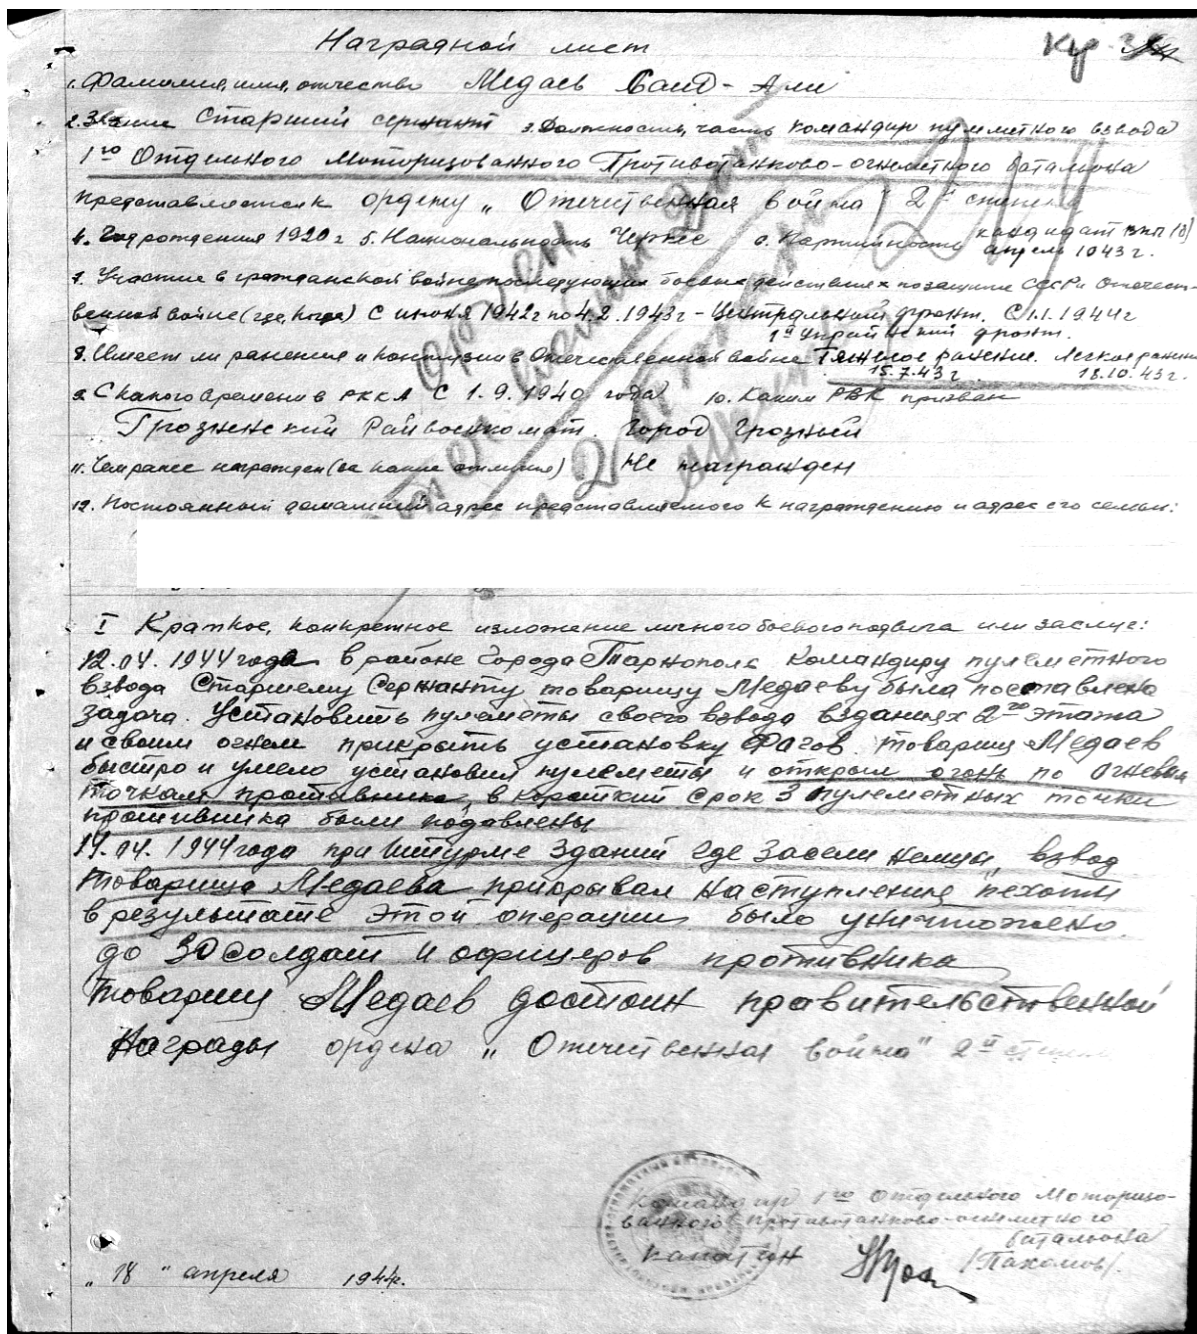 Наградной лист
1. Фамилия, имя, отчество Медаев Саид-Али
2. Звание Старший сержант 3. Должность, часть командир пулеметного взвода
1го Отдельного Моторизованного Противотанково-огнеметного баталиона
представляется к ордену „Отечественная война" 2й степени
4. Год рождения 1920 г 5. Национальность Черкес 6. Партийность кандидат ВКП(б)
апрель 1943 г.
7. Участие в гражданской войне, последующих боевых действиях по защите СССР и отечест-
венной войне (где, когда) С июня 1942 г по 4.2.1943 г - Центральный фронт. С 1.1.1944 г
1й Украинский фронт.
8. Имеет ли ранения и контузии в Отечественной войне Тяжелое ранение. Легкое ранение
15.7.43 г. 18.10.43 г.
9. С какого времени в РККА С 1.9.1940 года 10. Каким РВК призван
Грозненский Райвоенкомат. Город Грозный
11. Чем ранее награжден (за какие отличия) Не награжден
12. Постоянный домашний адрес представляемого к награждению и адрес его семьи:
I Краткое, конкретное изложение личного боевого подвига или заслуг:
12.04.1944 года в районе Города Тарнополь командиру пулеметного
взвода Старшему Сержанту товарищу Медаеву была поставлена
задача. Установить пулеметы своего взвода в зданиях 2го этажа
и своим огнем прикрыть установку Фагов. товарищ Медаев
быстро и умело установил пулеметы и открыл огонь по огневым
точкам противника, в короткий срок 3 пулеметных точки
противника были подавлены
14.04.1944 года при штурме зданий где засели немцы, взвод
товарища Медаева прикрывал наступление пехоты
в результате этой операции было уничтожено
до 30 солдат и офицеров противника
товарищ Медаев достоин правительственной
Награды ордена „Отечественная война" 2й степени
Командир 1го Отдельного Моторизо-
ванного противотанково-огнеметного
баталиона
капитан /Пахомов/.
„18" апреля 1944 г.